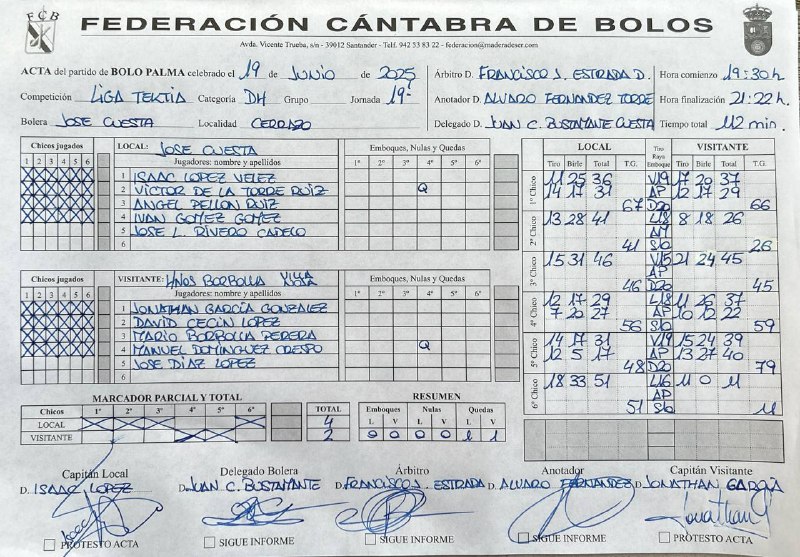 FCB
FEDERACIÓN CÁNTABRA DE BOLOS
Avda. Vicente Trueba, s/n - 39012 Santander - Telf. 942 53 83 22 - federacion@maderadeser.com
ACTA del partido de BOLO PALMA celebrado el 19 de JUNIO de 2025 Árbitro D. FRANCISCO J. ESTRADA D. Hora comienzo 19:30 h
Competición LIGA TEKTIA Categoría DH Grupo Jornada 19ª Anotador D. ALVARO FERNANDEZ TORRE Hora finalización 21:22 h.
Bolera JOSE CUESTA Localidad CERRAZO Delegado D. JUAN C. BUSTAMANTE CUESTA Tiempo total 112 min.
Chicos jugados LOCAL: JOSE CUESTA Emboques, Nulas y Quedas
1 2 3 4 5 6 Jugadores: nombre y apellidos 1º 2º 3º 4º 5º 6º
1 ISAAC LOPEZ VELEZ
2 VICTOR DE LA TORRE RUIZ Q
3 ANGEL PELLON RUIZ
4 IVAN GOMEZ GOMEZ
5 JOSE L. RIVERO CADELO
6
Chicos jugados VISITANTE: HNOS BORBOLLA VILLA NOJA Emboques, Nulas y Quedas
1 2 3 4 5 6 Jugadores: nombre y apellidos 1º 2º 3º 4º 5º 6º
1 JONATHAN GARCÍA GONZALEZ
2 DAVID CECIN LOPEZ
3 MARIO BORBOLLA PERERA
4 MANUEL DOMÍNGUEZ CRESPO Q
5 JOSE DIAZ LOPEZ
6
LOCAL Tiro Raya Emboque VISITANTE
Tiro Birle Total T.G. Tiro Birle Total T.G.
1º Chico
11 25 36 V19 17 20 37
14 17 31 AP 12 17 29
67 D20 66
2º Chico
13 28 41 L18 8 18 26
AM
41 S10 26
3º Chico
15 31 46 V15 21 24 45
AP
46 D20 45
4º Chico
12 17 29 L18 11 26 37
7 20 27 AP 10 12 22
56 S10 59
5º Chico
14 17 31 V19 15 24 39
12 5 17 AP 13 27 40
48 D20 79
6º Chico
18 33 51 L16 11 0 11
AP
51 S10 11
MARCADOR PARCIAL Y TOTAL RESUMEN
Chicos 1º 2º 3º 4º 5º 6º TOTAL Emboques Nulas Quedas
LOCAL 4 L V L V L V
VISITANTE 2 0 0 0 0 1 1
Capitán Local Delegado Bolera Árbitro Anotador Capitán Visitante
D. ISAAC LOPEZ D. JUAN C. BUSTAMANTE D. FRANCISCO J. ESTRADA D. ALVARO FERNANDEZ D. JONATHAN GARCÍA
PROTESTO ACTA SIGUE INFORME SIGUE INFORME SIGUE INFORME PROTESTO ACTA